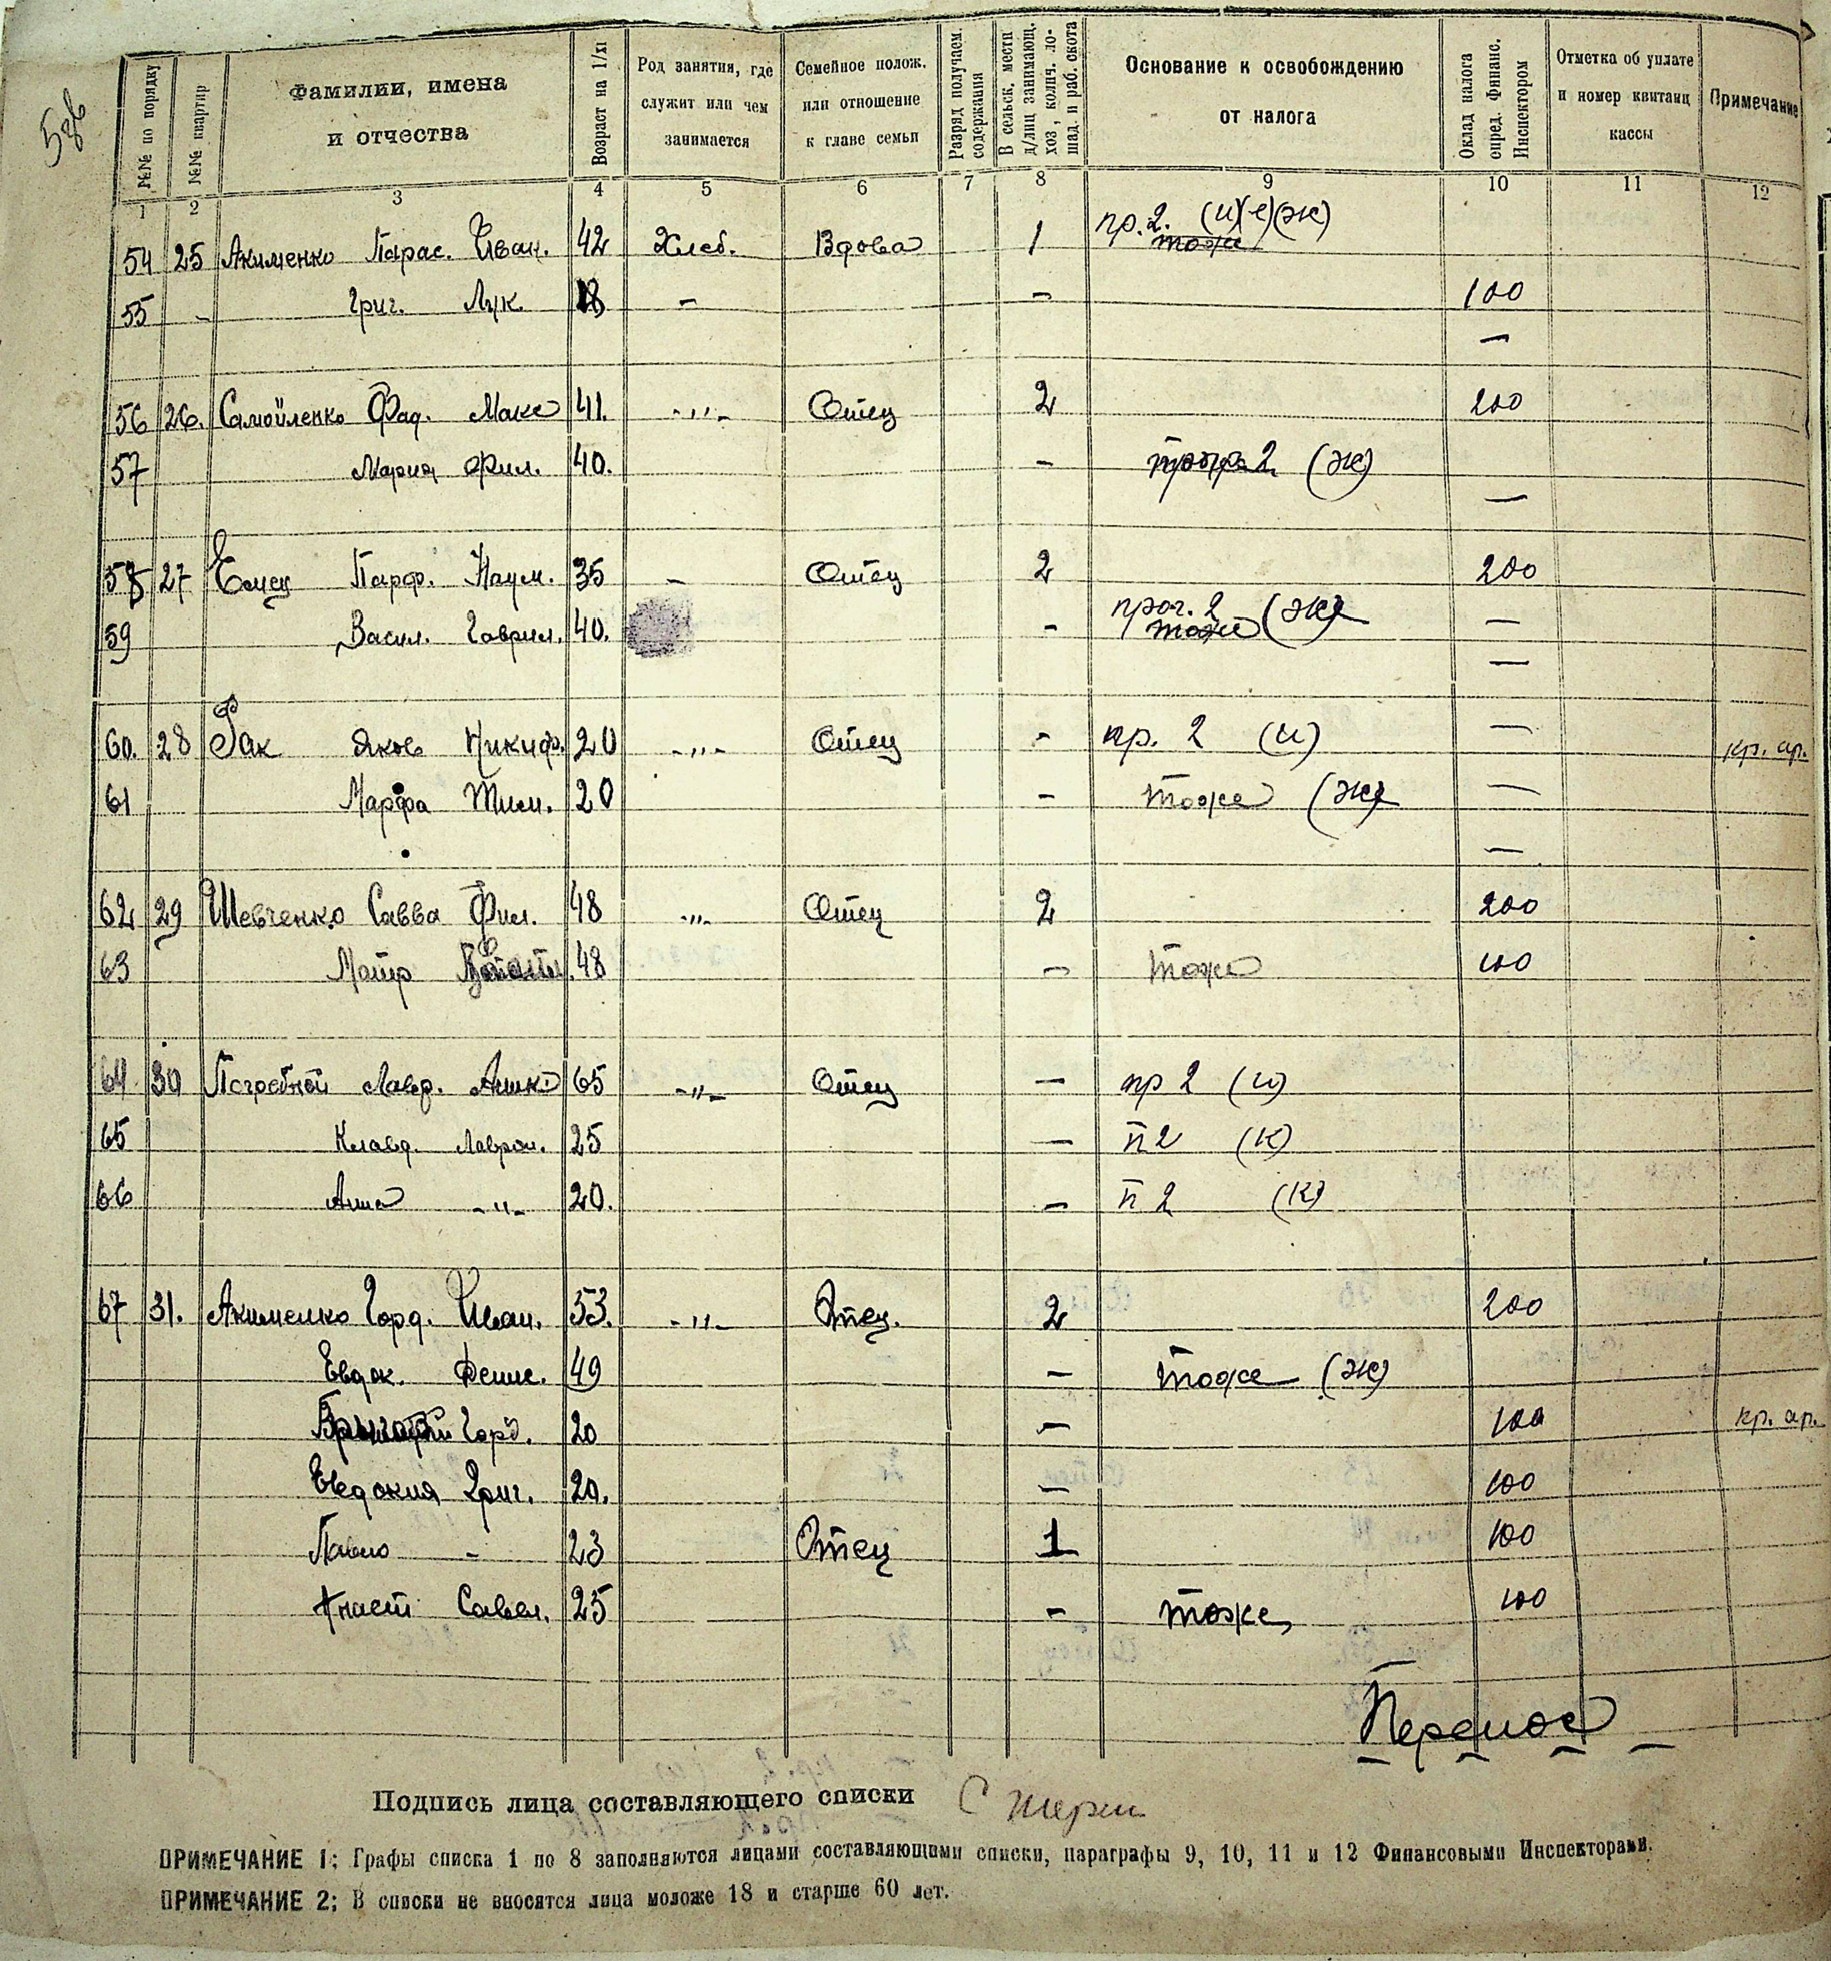 №№ по порядку
№№ квартир
Фамилии, имена и отчества
Возраст на 1/XI
Род занятия, где служит или чем занимается
Семейное полож. или отношение к главе семьи
Разряд получаем. содержания
В сельск. местн д/лиц занимающ. хоз, колич. лошад. и раб. скота
Основание к освобождению от налога
Оклад налога опред. Финанс. Инспектором
Отметка об уплате и номер квитанц кассы
Примечание
1 2 3 4 5 6 7 8 9 10 11 12
54 25 Акименко Парас. Иван. 42 Хлеб. Вдова 1 пр. 2. (и)(е)(ж) тоже
55 - Григ. Лук. 18 - - 100
—
56 26. Самойленко Фад. Макс 41. -"- Отец 2 200
57 Мария Фил. 40. - 2 (ж)
—
58 27 Емец Парф. Наум. 35 - Отец 2 200
59 Васил. Гаврил. 40. - 2 тоже (ж) —
—
60. 28 Рак Яков Никиф. 20 -"- Отец - пр. 2 (и) — кр. ар.
61 Марфа Тим. 20 - тоже (ж) —
—
62 29 Шевченко Савва Фил. 48 -"- Отец 2 200
63 Матр 48 - тоже 100
64 30 Погребной Лавр. 65 -"- Отец — пр 2 (и)
65 Клавд. Лаврен. 25 — п 2 (к)
66 Анна -"- 20. - п 2 (к)
67 31. Акименко Горд. Иван. 53. -"- Отец. 2 200
Евдок. Денис. 49 - тоже (ж)
Горд. 20 - 100 кр. ар.
Евдокия Григ. 20. - 100
Павло - 23 Отец 1 100
Анаст Савел. 25 - тоже 100
Перенос
Подпись лица составляющего списки
ПРИМЕЧАНИЕ 1; Графы списка 1 по 8 заполняются лицами составляющими списки, параграфы 9, 10, 11 и 12 Финансовыми Инспекторами.
ПРИМЕЧАНИЕ 2; В списки не вносятся лица моложе 18 и старше 60 лет.